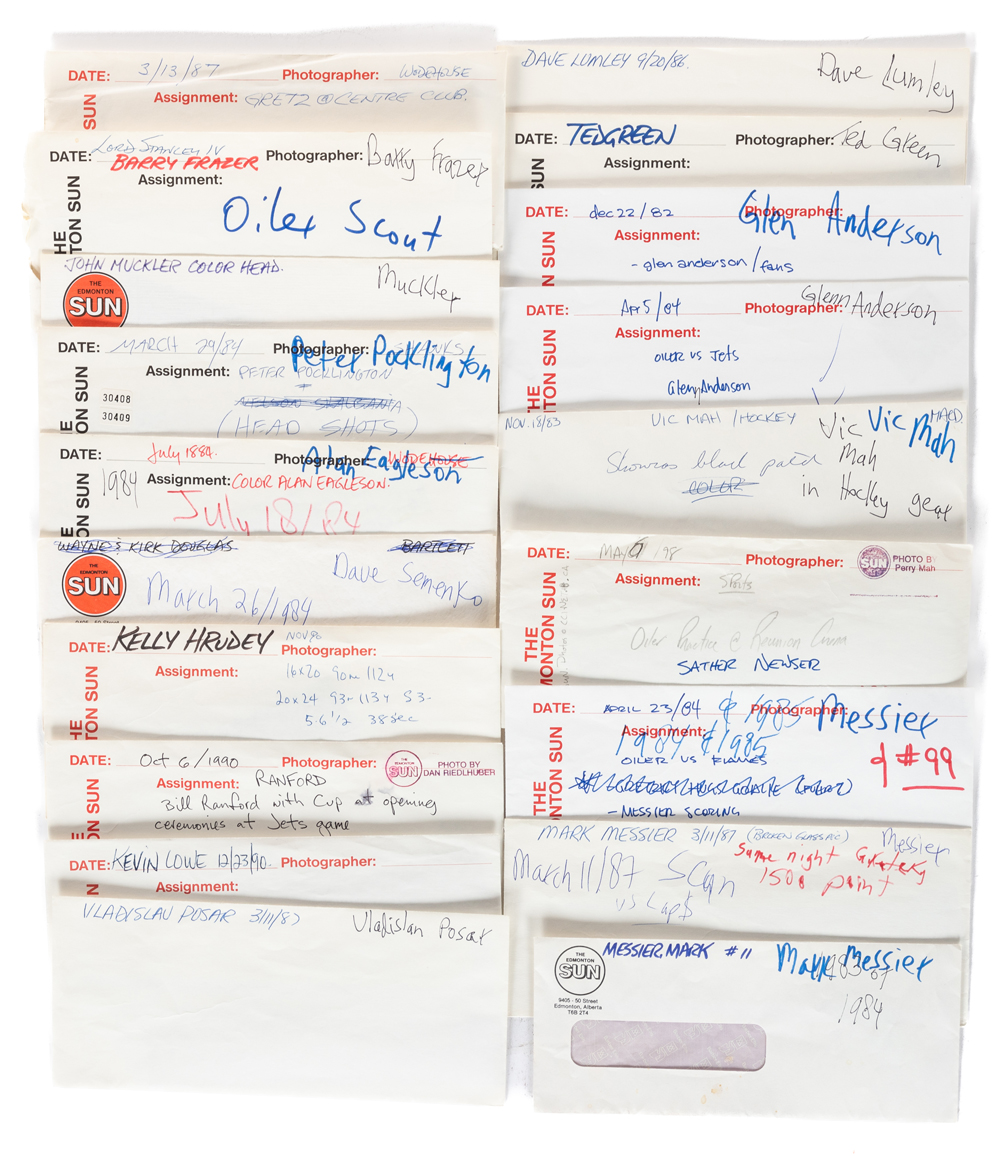 DATE: 3/13/87 Photographer: WODEHOUSE
SUN
Assignment: GRETZ @ CENTRE CLUB.
LORD STANLEY IV
DATE: BARRY FRAZER Photographer: Barry Frazer
Assignment:
THE
TON SUN
Oiler Scout
JOHN MUCKLER COLOR HEAD.
Muckler
THE
EDMONTON
SUN
DATE: MARCH 29/84 Photographer: SHANKS
Peter Pocklington
Assignment: PETER POCKLINGTON
30408
30409
E
ON SUN
(HEAD SHOTS)
DATE: July 1884. Photographer: WODEHOUSE
Alan Eagleson
1984 Assignment: COLOR ALAN EAGLESON.
E
ON SUN
July 18/84
WAYNE & KIRK DOUGLAS BARTLETT
THE
EDMONTON
SUN
Dave Semenko
March 26/1984
DATE: KELLY HRUDEY NOV 90
Assignment: 16x20 90m 112y
20x24 93m 113y 53-
5.6 1/2 38sec
THE
TON SUN
DATE: Oct 6/1990 Photographer:
THE
EDMONTON
SUN
PHOTO BY
DAN RIEDLHUBER
Assignment: RANFORD
Bill Ranford with Cup at opening
ceremonies at Jets game
E
ON SUN
DATE: KEVIN LOWE 12/23/90 Photographer:
Assignment:
N
VLADISLAV POSAR 3/11/87 Vladislan Posar
DAVE LUMLEY 9/20/86. Dave Lumley
DATE: TED GREEN Photographer: Ted Green
Assignment:
SUN
DATE: dec 22/82 Photographer:
Glen Anderson
Assignment:
- glen anderson / fans
N SUN
DATE: Apr 5/84 Photographer: Glenn Anderson
Assignment:
OILER VS Jets
Glenn Anderson
THE
TON SUN
NOV. 18/83 VIC MAH / HOCKEY Vic Vic Mah
Mah
COLOR in Hockey gear
DATE: MAY 7/98 Photographer:
SUN
PHOTO BY
Perry Mah
Assignment: Sports
THE
MONTON SUN
Oiler Practice @
SATHER NEWSER
DATE: APRIL 23/84 & 1985 Photographer: Messier
Assignment:
1984 & 1985
OILER VS FLAMES
& #99
- MESSIER SCORING
THE
MONTON SUN
MARK MESSIER 3/11/87 (BROKEN GLASS PIC) Messier
March 11/87 Scan
vs Cap$
Same night Gretzky
1500 point
THE
EDMONTON
SUN
MESSIER, MARK #11 Mark Messier
9405 - 50 Street
Edmonton, Alberta
T6B 2T4
1984